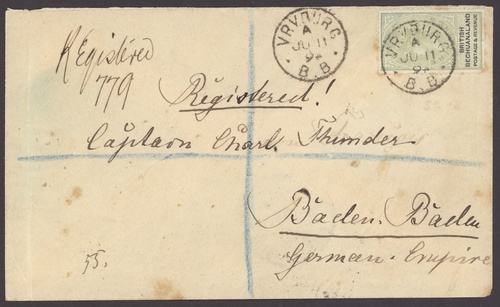 Registered
779
VRYBURG
A
JU 11
9
B.B.
VRYBURG
A
JU 11
9
B.B.
BRITISH
BECHUANALAND
POSTAGE & REVENUE
Registered!
Captaon Charls Thunder
Baden-Baden
German-Empire
55.